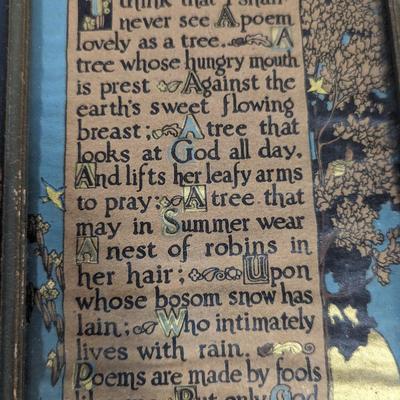 I think that I shall
never see A poem
lovely as a tree.. A
tree whose hungry mouth
is prest Against the
earth's sweet flowing
breast; A tree that
looks at God all day,
And lifts her leafy arms
to pray; A tree that
may in Summer wear
A nest of robins in
her hair; Upon
whose bosom snow has
lain; Who intimately
lives with rain.
Poems are made by fools
like me, But only God